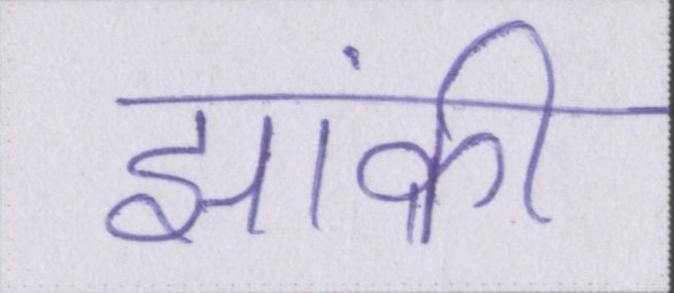 झांकी